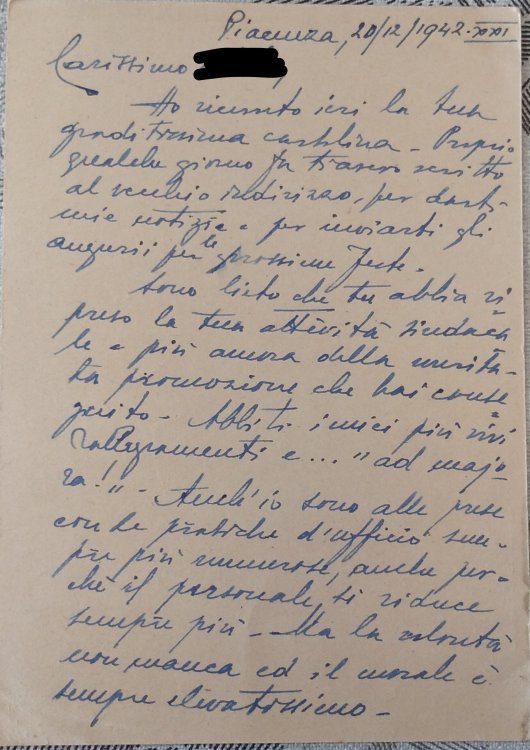 Piacenza, 20/12/1942-XXI
Carissimo
Ho ricevuto ieri la tua
graditissima cartolina - Proprio
qualche giorno fa t'avevo scritto
al vecchio indirizzo, per darti
mie notizie e per inviarti gli
augurii per le prossime feste.
Sono lieto che tu abbia ri=
preso la tua attività sindaca
le e più ancora della merita-
ta promozione che hai conse=
guito - Abbiti i miei più vivi
rallegramenti e... "ad majo-
ra!" - Anch'io sono alle prese
con le pratiche d'ufficio sem-
pre più numerose, anche per-
chè il personale si riduce
sempre più - Ma la volontà
non manca ed il morale è
sempre elevatissimo -